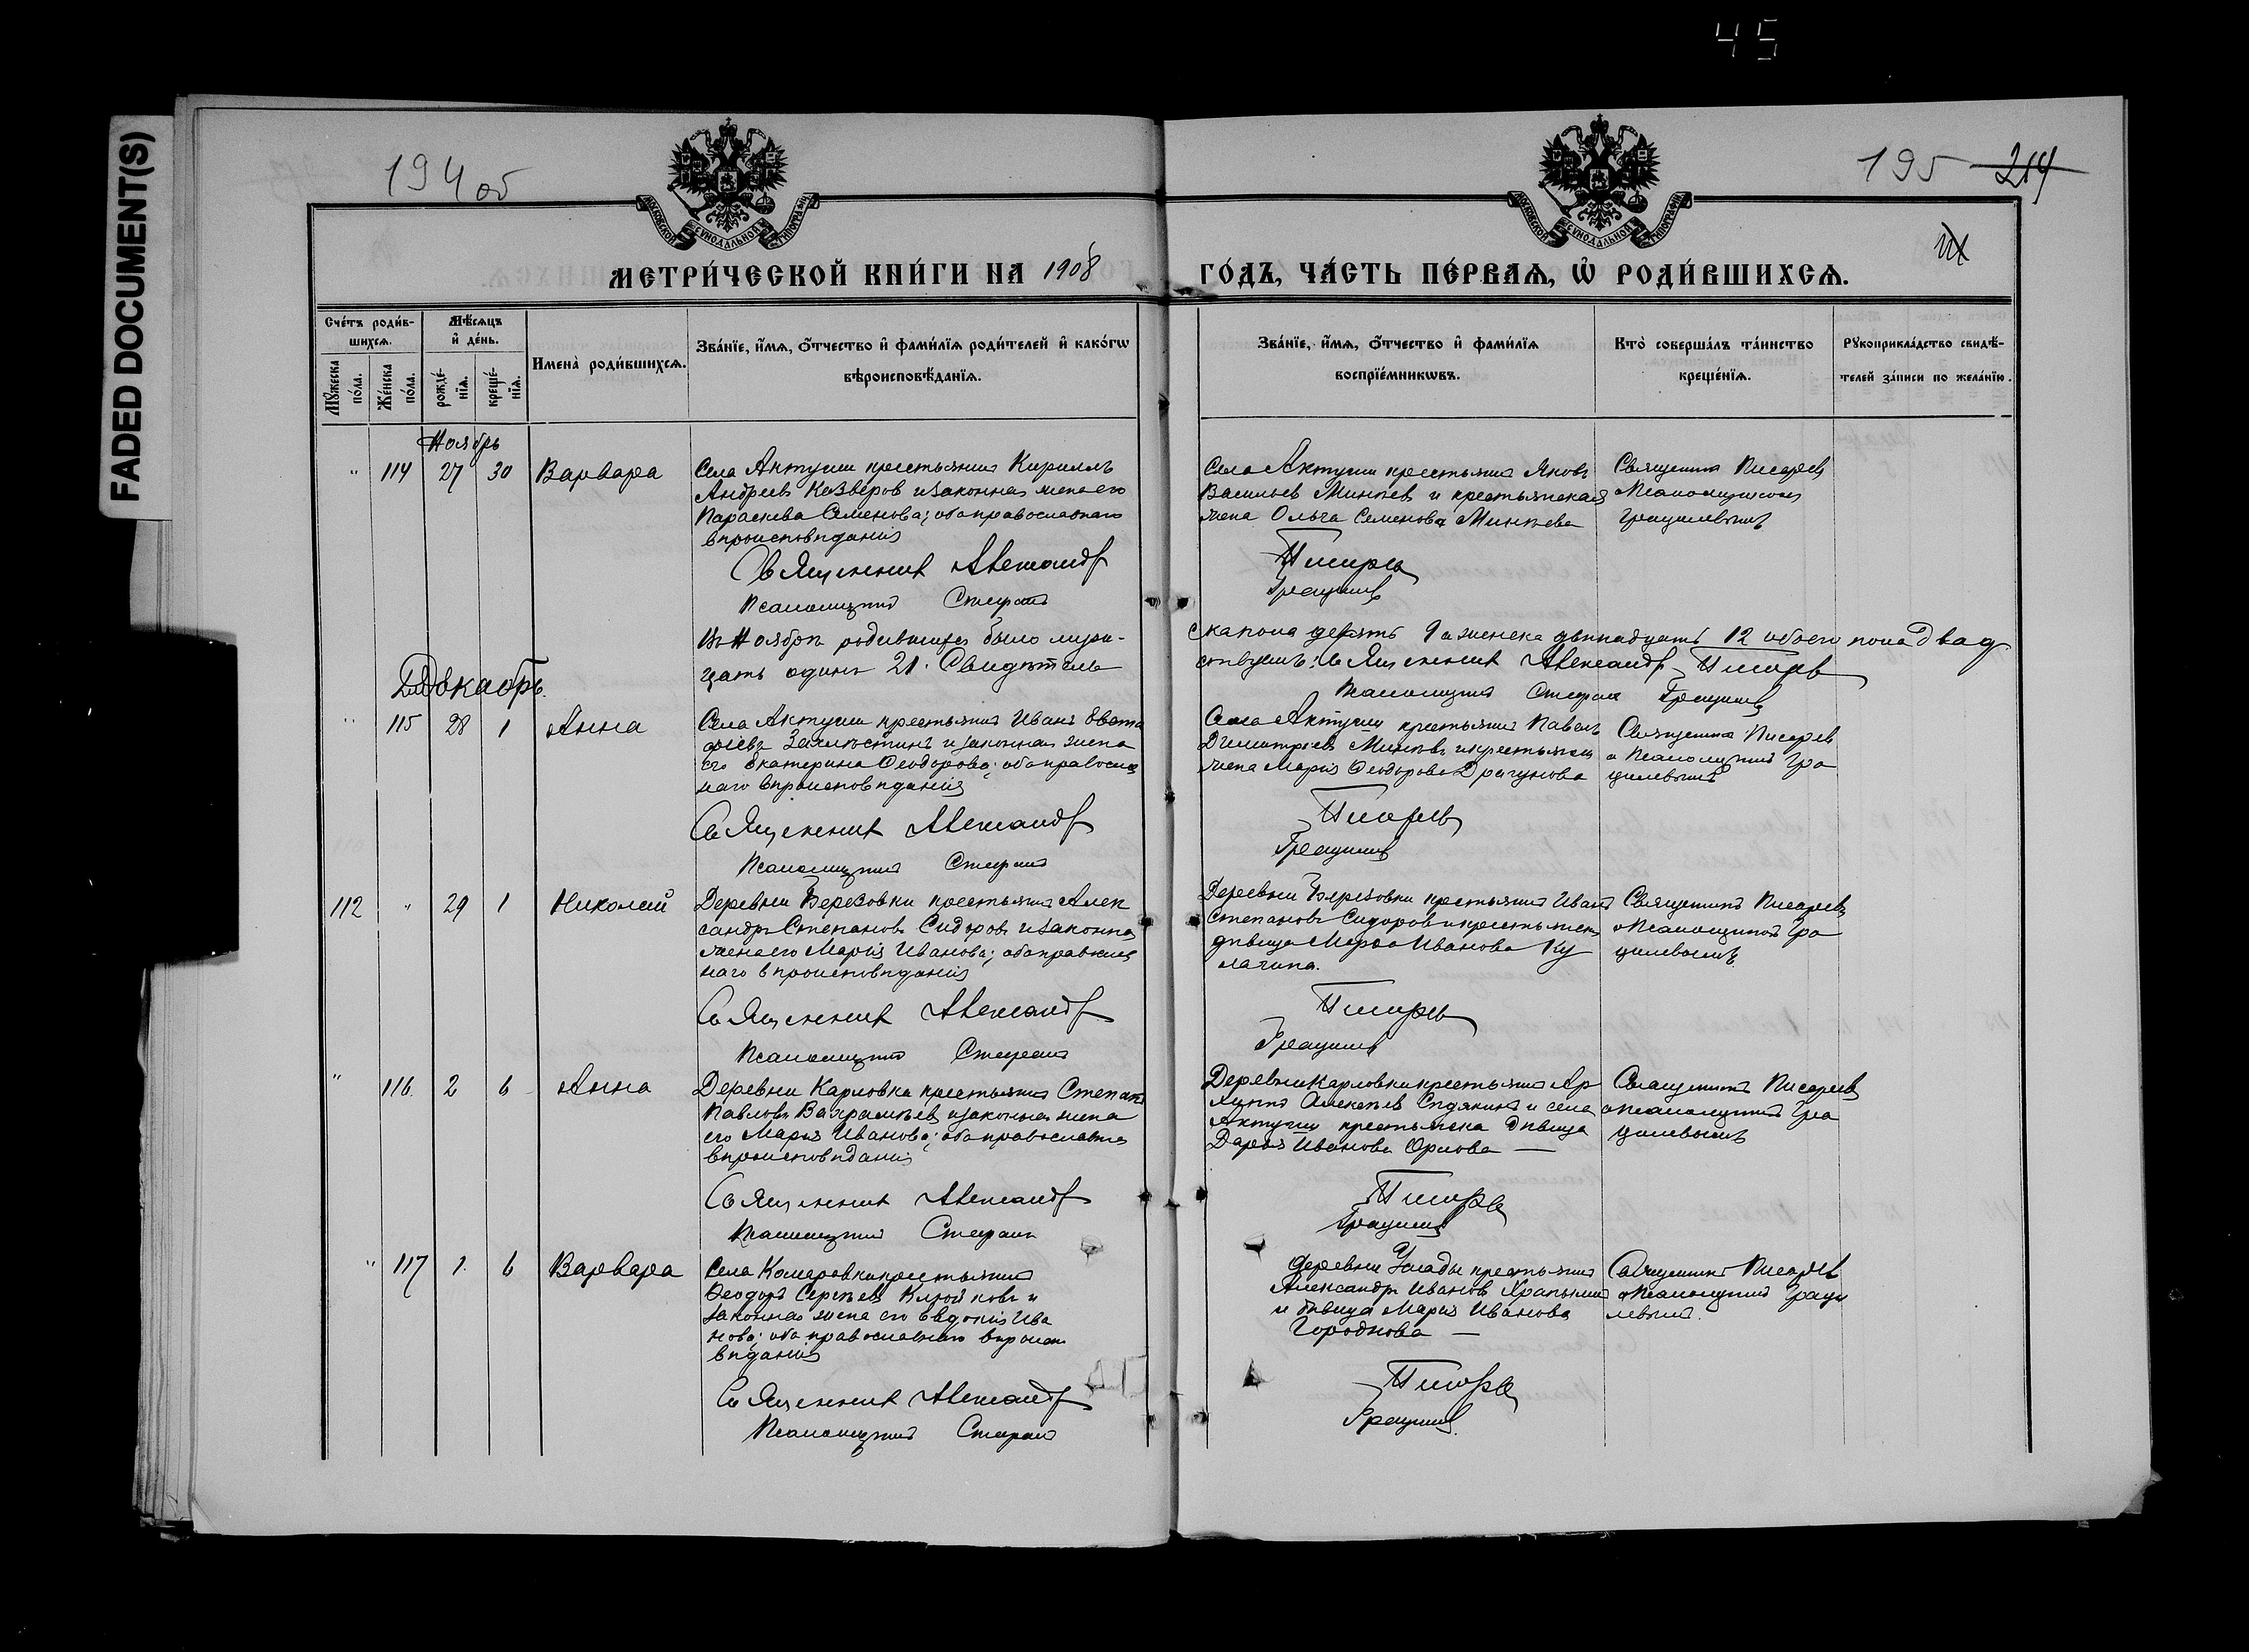 45
FADED DOCUMENT(S)
194 об
195 214
МОСКОВСКОЙ СѴНОДАЛЬНОЙ ТИПОГРАФІИ
МОСКОВСКОЙ СѴНОДАЛЬНОЙ ТИПОГРАФІИ
МЕТРИ́ЧЕСКОЙ КНИ́ГИ НА 1908
ГО́ДЪ, ЧА́СТЬ ПЕ́РВАѦ, Ѿ РОДИ́ВШИХСѦ.
Сче́тъ роди́в-
шихсѧ.
Мꙋ́жеска по́ла.
Же́нска по́ла.
Мѣ́сѧцъ
и҆ де́нь.
рожде́-
нїѧ.
креще́-
нїѧ.
Имена̀ роди́вшихсѧ.
Зва́нїе, и҆́мѧ, ѻ҆́тчество и҆ фами́лїѧ роди́телей и҆ како́гѡ
вѣроисповѣ́данїѧ.
Зва́нїе, и҆́мѧ, ѻ҆́тчество и҆ фами́лїѧ
воспрїе́мникѡвъ.
Кто̀ соверша́лъ та́инство
креще́нїѧ.
Рꙋкоприкла́дство свидѣ́-
телей за́писи по жела́нїю.
Ноябрь
" 114 27 30 Варвара
Села Актуши крестьянинъ Кириллъ
Андреевъ Казверов и законная жена его
Параскева Семенова; оба православнаго
вѣроисповѣданія
Священникъ Александръ
Псаломщикъ Стефанъ
Села Актуши крестьянинъ Яковъ
Васильев Минѣев и крестьянская
жена Ольга Семенова Минѣева
Писарев
Грацилев
Священникъ Писарев
Псаломщикомъ
Грацилевымъ
Въ Ноябрѣ родившихся было муже-
ска пола девять 9 а женска двѣнадцать 12 обоего пола двад
цать одинъ 21. Свидѣтель
ствуемъ: Священникъ Александръ Писарев
Псаломщикъ Стефанъ Грацилев
Декабрь.
" 115 28 1 Анна
Села Актуши крестьянинъ Иванъ Евста
фіевъ и законная жена
его Екатерина Ѳеодорова; оба правосла
наго вѣроисповѣданія
Священникъ Александръ
Псаломщикъ Стефанъ
Села Актуши крестьянинъ Павелъ
Димитріевъ Минѣев и крестьянская
жена Марія Ѳеодорова Драгунова
Писарев
Грацилев
Священникъ Писарев
и Псаломщикъ Гра
цилевымъ
112 " 29 1 Николай
Деревни Березовки крестьянинъ Алек
сандръ Степановъ Сидоровъ и законная
жена его Марія Иванова; оба правосл
наго вѣроисповѣданія
Священникъ Александръ
Псаломщикъ Стефанъ
Деревни Березовки крестьянинъ Иванъ
Степановъ Сидоров и крестьянск
дѣвица Марѳа Иванова Ку
лагина.
Писарев
Грацилев
Священникъ Писаревъ
и Псаломщикомъ Гра
цилевымъ.
" 116. 2 6 Анна
Деревни Карловка крестьянинъ Степанъ
Павловъ Вахрамѣев и законная жена
его Марія Иванова; оба православна
вѣроисповѣданія
Священникъ Александръ
Псаломщикъ Стефанъ
Деревни Карловки крестьянинъ Ар
Алексѣев и села
Актуши крестьянска дѣвица
Дарья Иванова Орлова —
Писарев
Грацилев
Священникъ Писарев
и Псаломщикъ Гра
цилевымъ
" 117 1. 6 Варвара
Села Комаровки крестьянинъ
Ѳеодоръ Сергѣев Клюйковъ и
законная жена его Евдокія Ива
нова; оба православнаго вѣроиспо
вѣданія
Священникъ Александръ
Псаломщикъ Стефанъ
деревни Услады крестьянинъ
Александръ Иванов Храпынин
и дѣвица Марія Иванова
Городнова —
Писарев
Грацилев.
Священникъ Писарев
и Псаломщикъ Граци
левымъ.